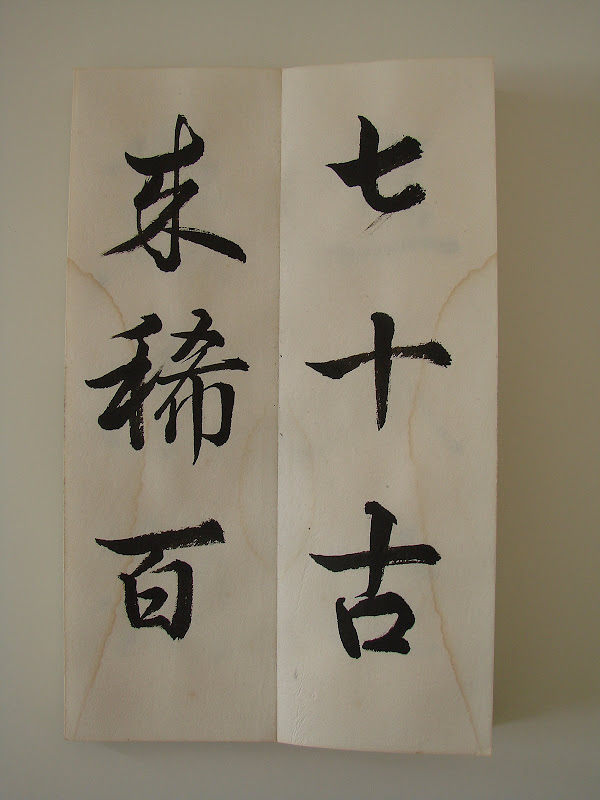 七十古
来稀百